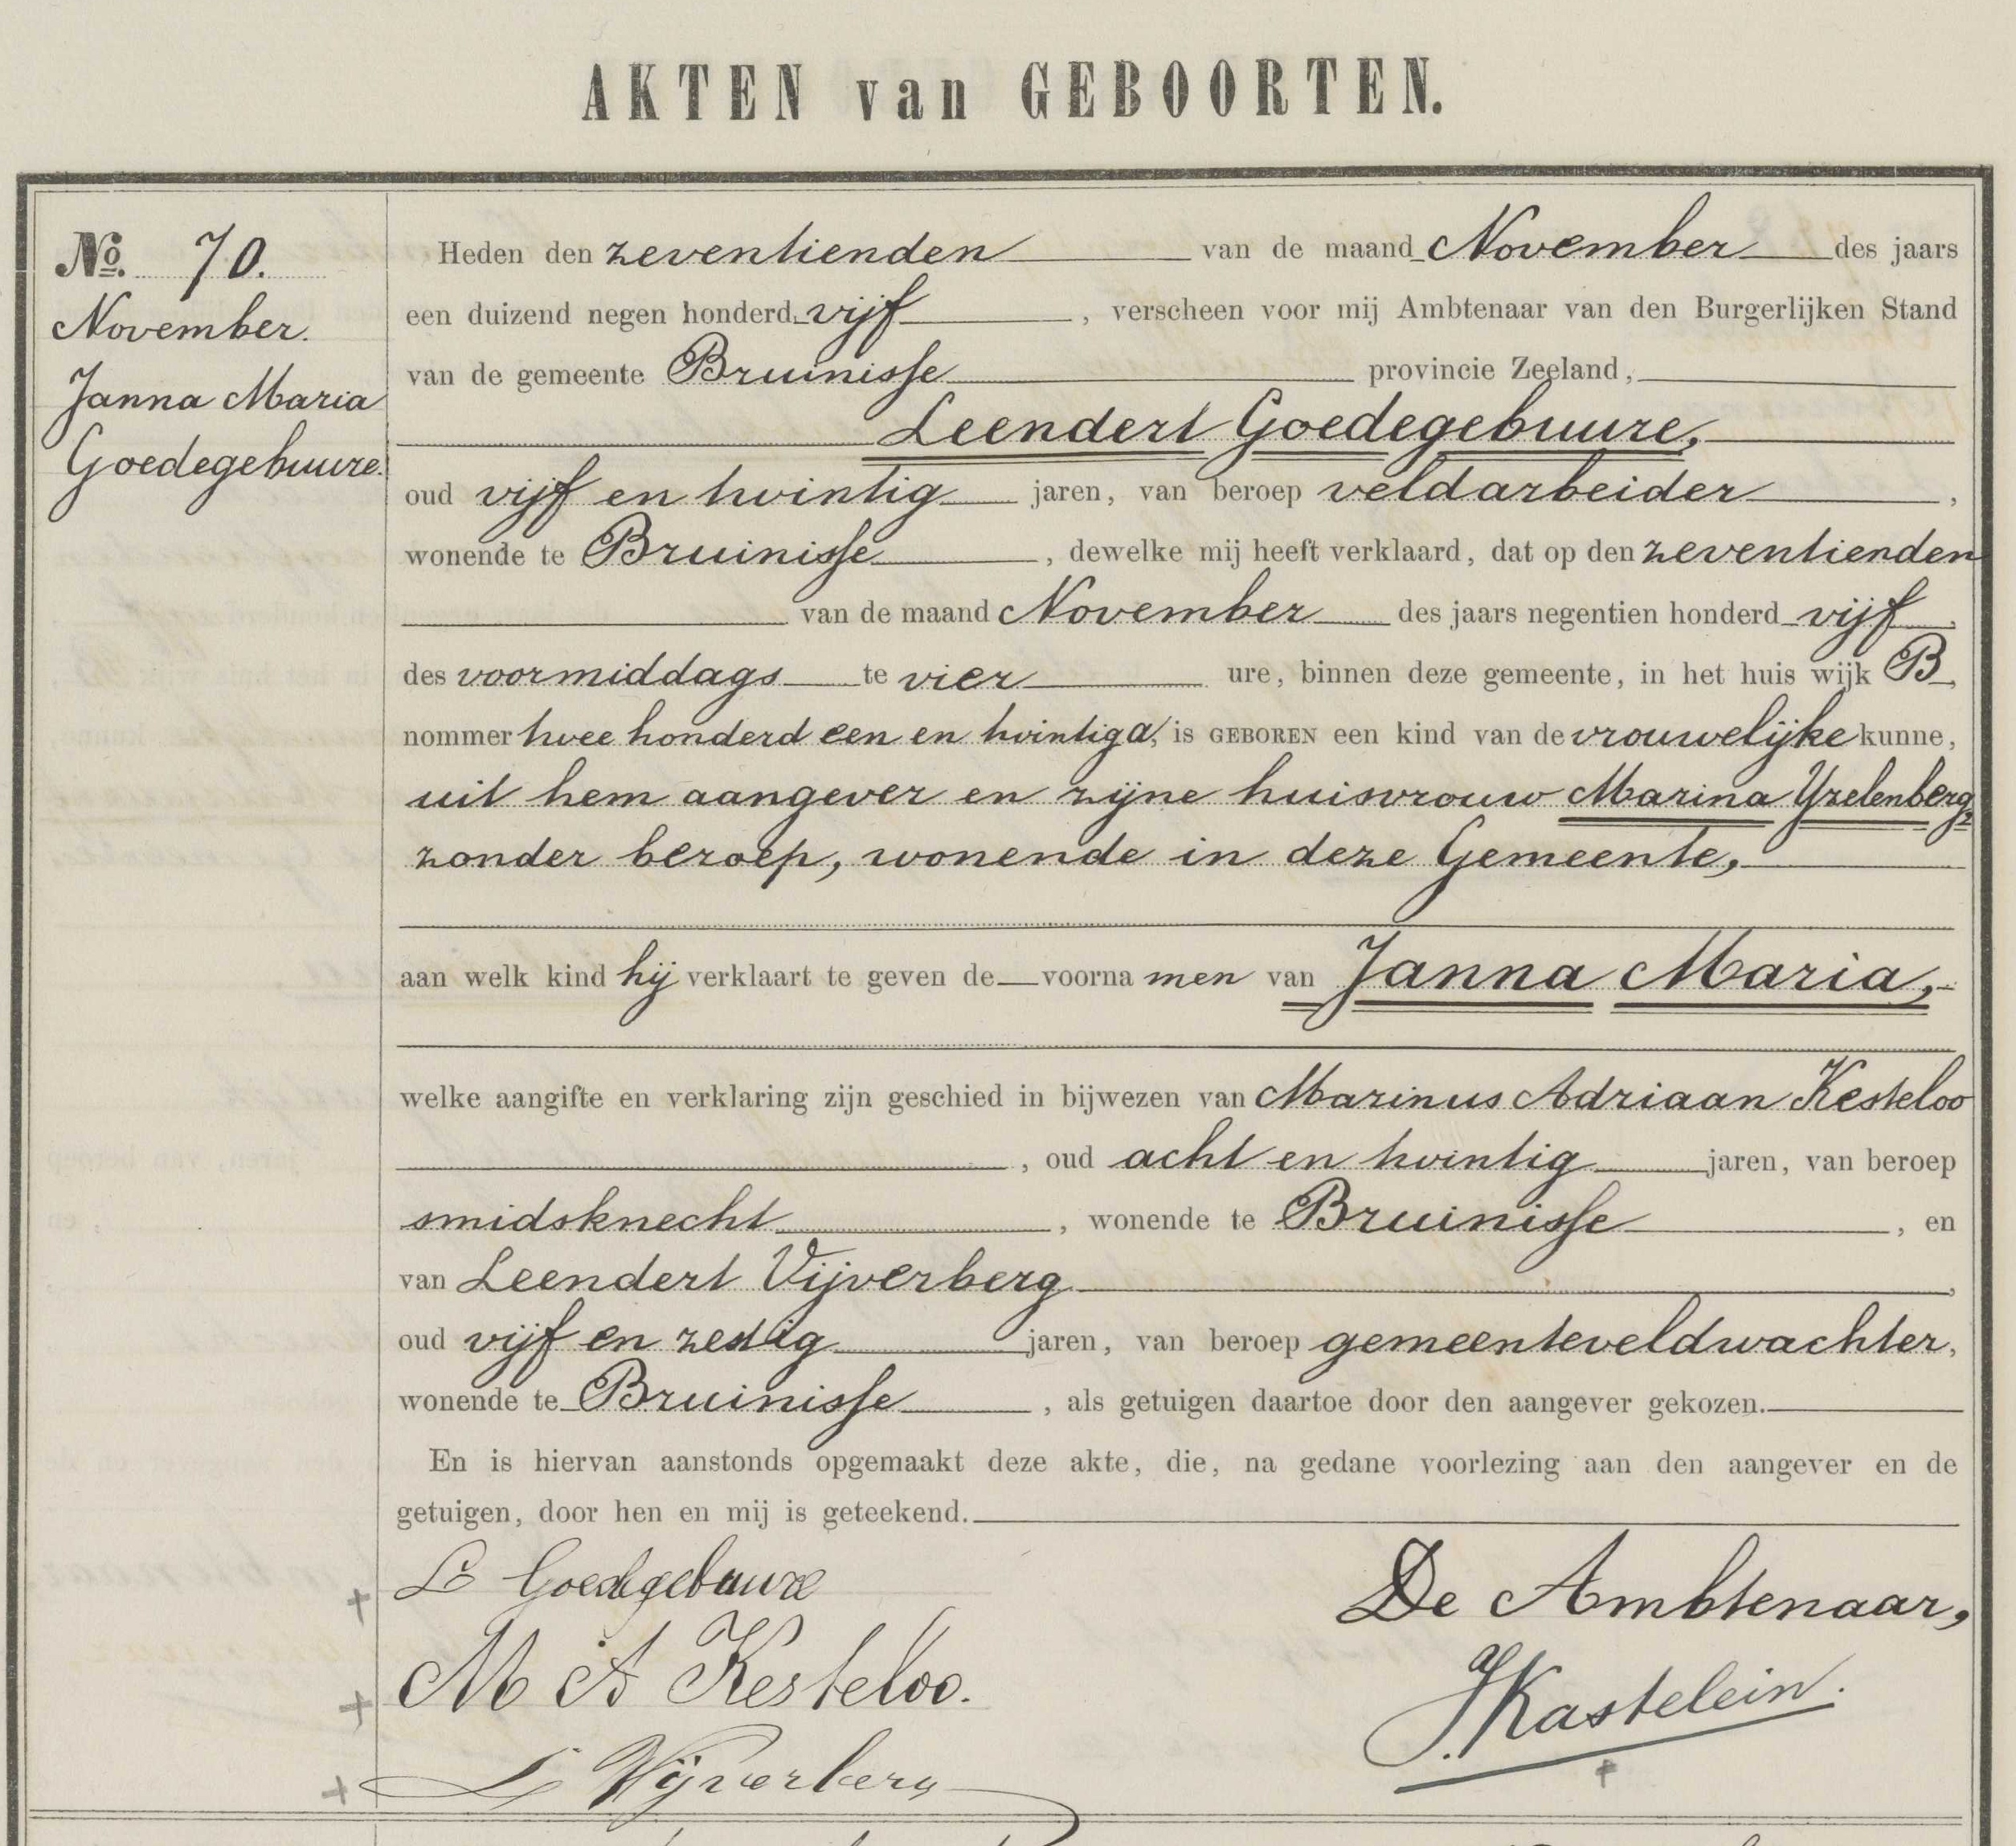 AKTEN van GEBOORTEN.
No. 70.
November.
Janna Maria
Goedegebuure.
Heden den zeventienden van de maand November des jaars
een duizend negen honderd vijf, verscheen voor mij Ambtenaar van den Burgerlijken Stand
van de gemeente Bruinisse provincie Zeeland,
Leendert Goedegebuure,
oud vijf en twintig jaren, van beroep veldarbeider,
wonende te Bruinisse, dewelke mij heeft verklaard, dat op den zeventienden
van de maand November des jaars negentien honderd vijf,
des voormiddags te vier ure, binnen deze gemeente, in het huis wijk B,
nommer twee honderd een en twintig a, is GEBOREN een kind van de vrouwelijke kunne,
uit hem aangever en zijne huisvrouw Marina Yzelenberg,
zonder beroep, wonende in deze Gemeente,
aan welk kind hij verklaart te geven de voornamen van Janna Maria,
welke aangifte en verklaring zijn geschied in bijwezen van Marinus Adriaan Kesteloo
, oud acht en twintig jaren, van beroep
smidsknecht, wonende te Bruinisse, en
van Leendert Vijverberg,
oud vijf en zestig jaren, van beroep gemeenteveldwachter,
wonende te Bruinisse, als getuigen daartoe door den aangever gekozen.
En is hiervan aanstonds opgemaakt deze akte, die, na gedane voorlezing aan den aangever en de
getuigen, door hen en mij is geteekend.
L Goedegebuure
De Ambtenaar,
M A Kesteloo.
J Kastelein.
L Vijverberg